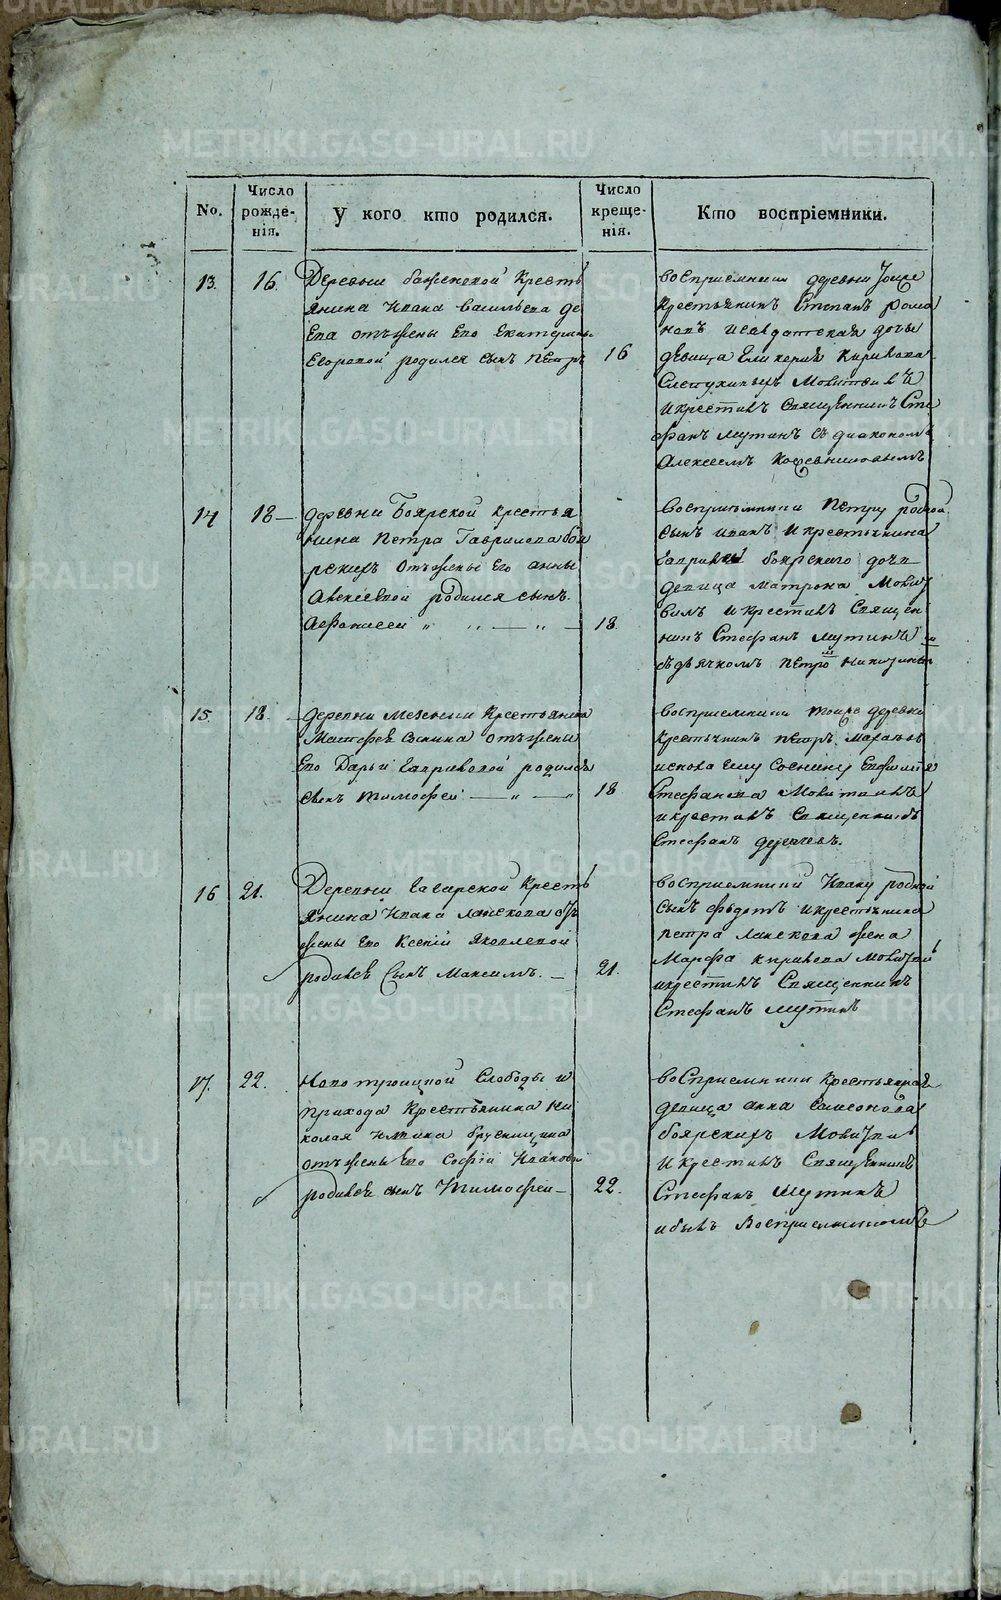 No.
Число рожде-нія.
У кого кто родился.
Число креще-нія.
Кто воспріемники.
13.
16.
Деревни баженовой Кресть
янина Ивана Васильева
Ева отъжены Его Екатерины
Егоровой родился сынъ Петръ
16
восприемники деревни
крестьянинъ Степанъ рома
новъ исалдатская дочь
девица Гликерия Кирилова
Молитвилъ
икрестилъ Священникъ Сте
фанъ мутинъ съ диакономъ
Алексеемъ
14
18
деревни Боярской крестья
нина Петра Гаврилова боя
рскихъ отъжены Его анны
Алексеевой родился сынъ
Афонасей „ „ — „ —
18.
восприемники Петру родной
сынъ иванъ и крестьянина
боярского дочь
девица матрона Молит
вилъ и крестилъ Священ
никъ Стефанъ мутинъ
съдьячкомъ петро
15.
18.
деревни Мезенки Крестьянина
Матфея Сокина отъжены
Его Дарьи Гавриловой родился
сынъ тимофей — „ — „
18
восприемники тоиже деревни
крестьянинъ петръ
Стефанова Молитвилъ
икрестилъ Священникъ
Стефанъ
16
21.
Деревни Гагарской Кресть
янина Ивана Ланскова отъ
жены Его Ксении Яковлевой
родился Сынъ Максимъ. —
21.
восприемники Ивану родной
сынъ федотъ икрестьянина
петра Ланскова жена
Марфа кирилова
икрестилъ Священникъ
Стефанъ мутинъ
17.
22.
Ново троицкой Слободы и
прихода Крестьянина Ни
колая брусницина
отъжены Его Софии Ивановой
родился сынъ Тимофей —
22.
восприемники крестьянская
девица анна самсонова
боярскихъ
и крестилъ Священникъ
Стефанъ Мутинъ
ибылъ Восприемникомъ
METRIKI.GASO-URAL.RU